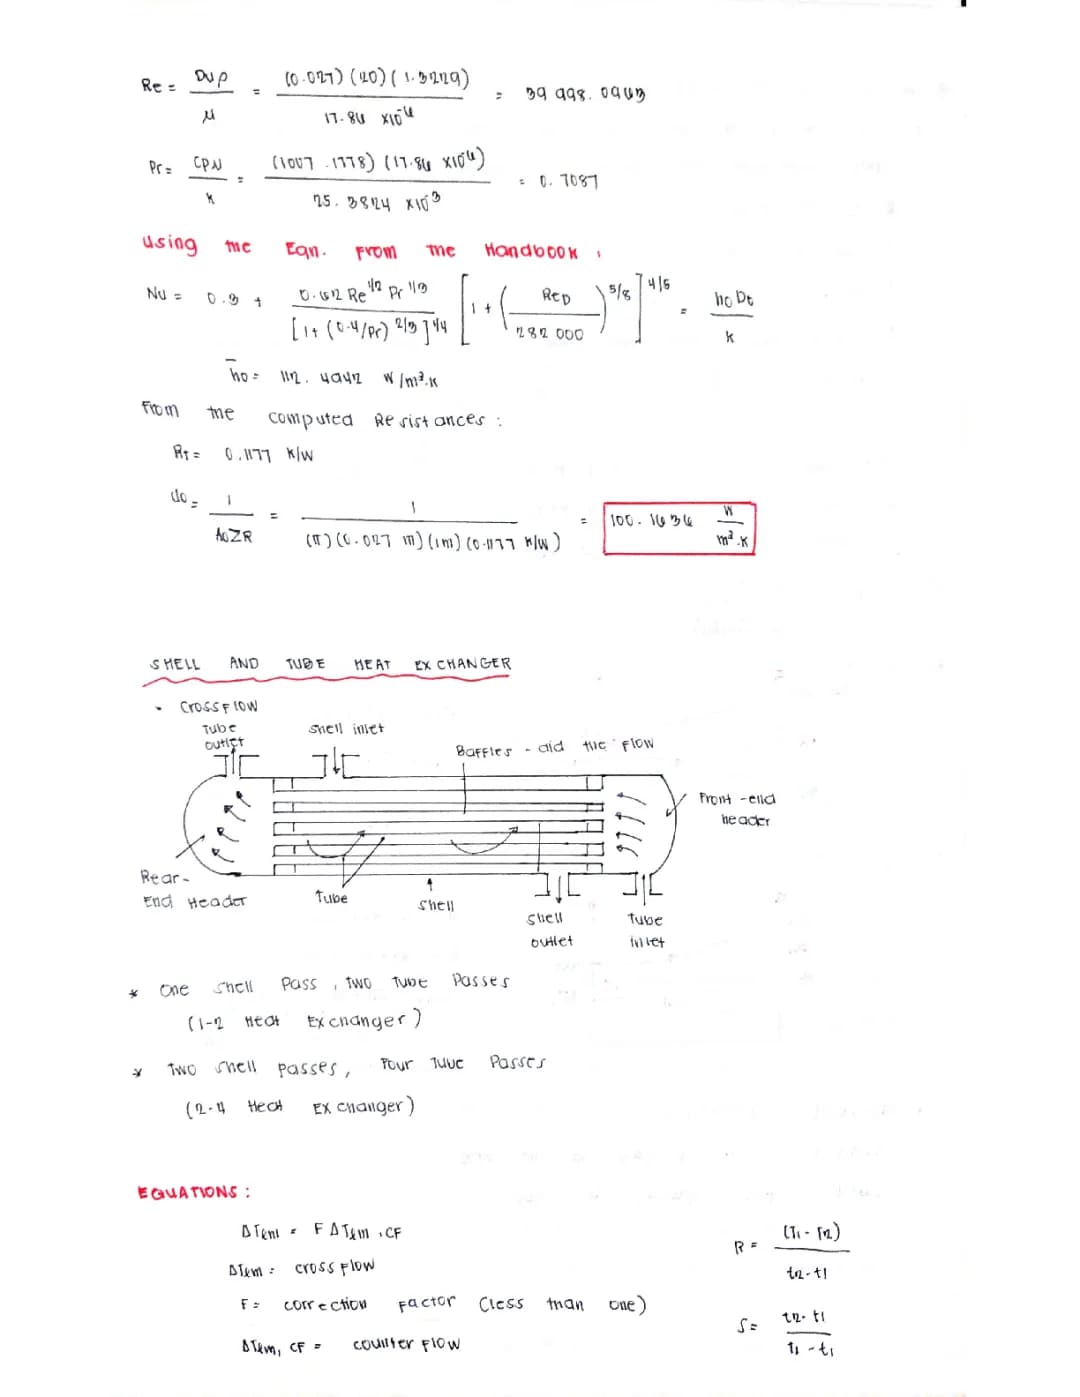 Re = Dvρ / μ = (0.027)(20)(1.3229) / 17.86 x10⁻⁶ = 39 998.0963
Pr = CPμ / k = (1007.1778)(17.86 x10⁻⁶) / 25.3824 x10⁻³ = 0.7087
using the Eqn. From the Handbook :
Nu = 0.3 + 0.62 Re^1/2 Pr^1/3 / [1+ (0.4/Pr)^2/3]^1/4 [1 + (ReD / 282 000)^5/8]^4/5 = ho Do / k
h̄o = 112.4942 W/m².K
From the computed Resistances :
RT = 0.1177 K/W
Uo = 1 / AoΣR = 1 / (π)(0.027 m)(1m)(0.1177 K/W) = 100.1636 W / m².K
SHELL AND TUBE HEAT EXCHANGER
• Crossflow
Tube outlet
Shell inlet
Baffles - aid the flow
Front-end header
Rear-End Header
Tube
Shell
Shell outlet
Tube inlet
* One Shell Pass, Two Tube Passes
(1-2 Heat Exchanger)
* Two Shell passes, Four Tube Passes
(2-4 Heat Exchanger)
EQUATIONS :
ΔTlm = F ΔTlm, CF
ΔTlm = cross flow
F = correction Factor (less than one)
ΔTlm, CF = counter flow
R = (T1 - T2) / t2 - t1
S = t2 - t1 / t1 - t1